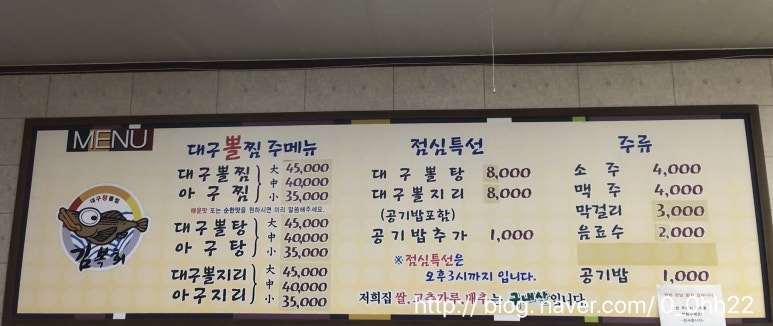 MENU
대구뽈찜
김복희
대구뽈찜 주메뉴
대구뽈찜 大 45,000
아구찜 中 40,000
小 35,000
매운맛 또는 순한맛을 원하시면 미리 말씀해주세요.
대구뽈탕 大 45,000
아구탕 中 40,000
小 35,000
대구뽈지리 大 45,000
아구지리 中 40,000
小 35,000
점심특선
대구뽈탕 8,000
대구뽈지리 8,000
(공기밥포함)
공기밥추가 1,000
※점심특선은
오후3시까지 입니다.
저희집 쌀, 고추가루, 배추는 국내산입니다
주류
소주 4,000
맥주 4,000
막걸리 3,000
음료수 2,000
공기밥 1,000
http://blog.naver.com/0_0hh22